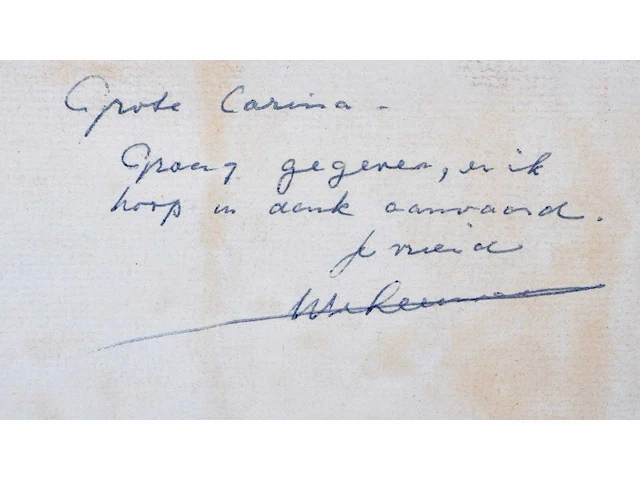 Grote Carina -
Graag gegeven, en ik
hoop in dank aanvaard.
Je vriend